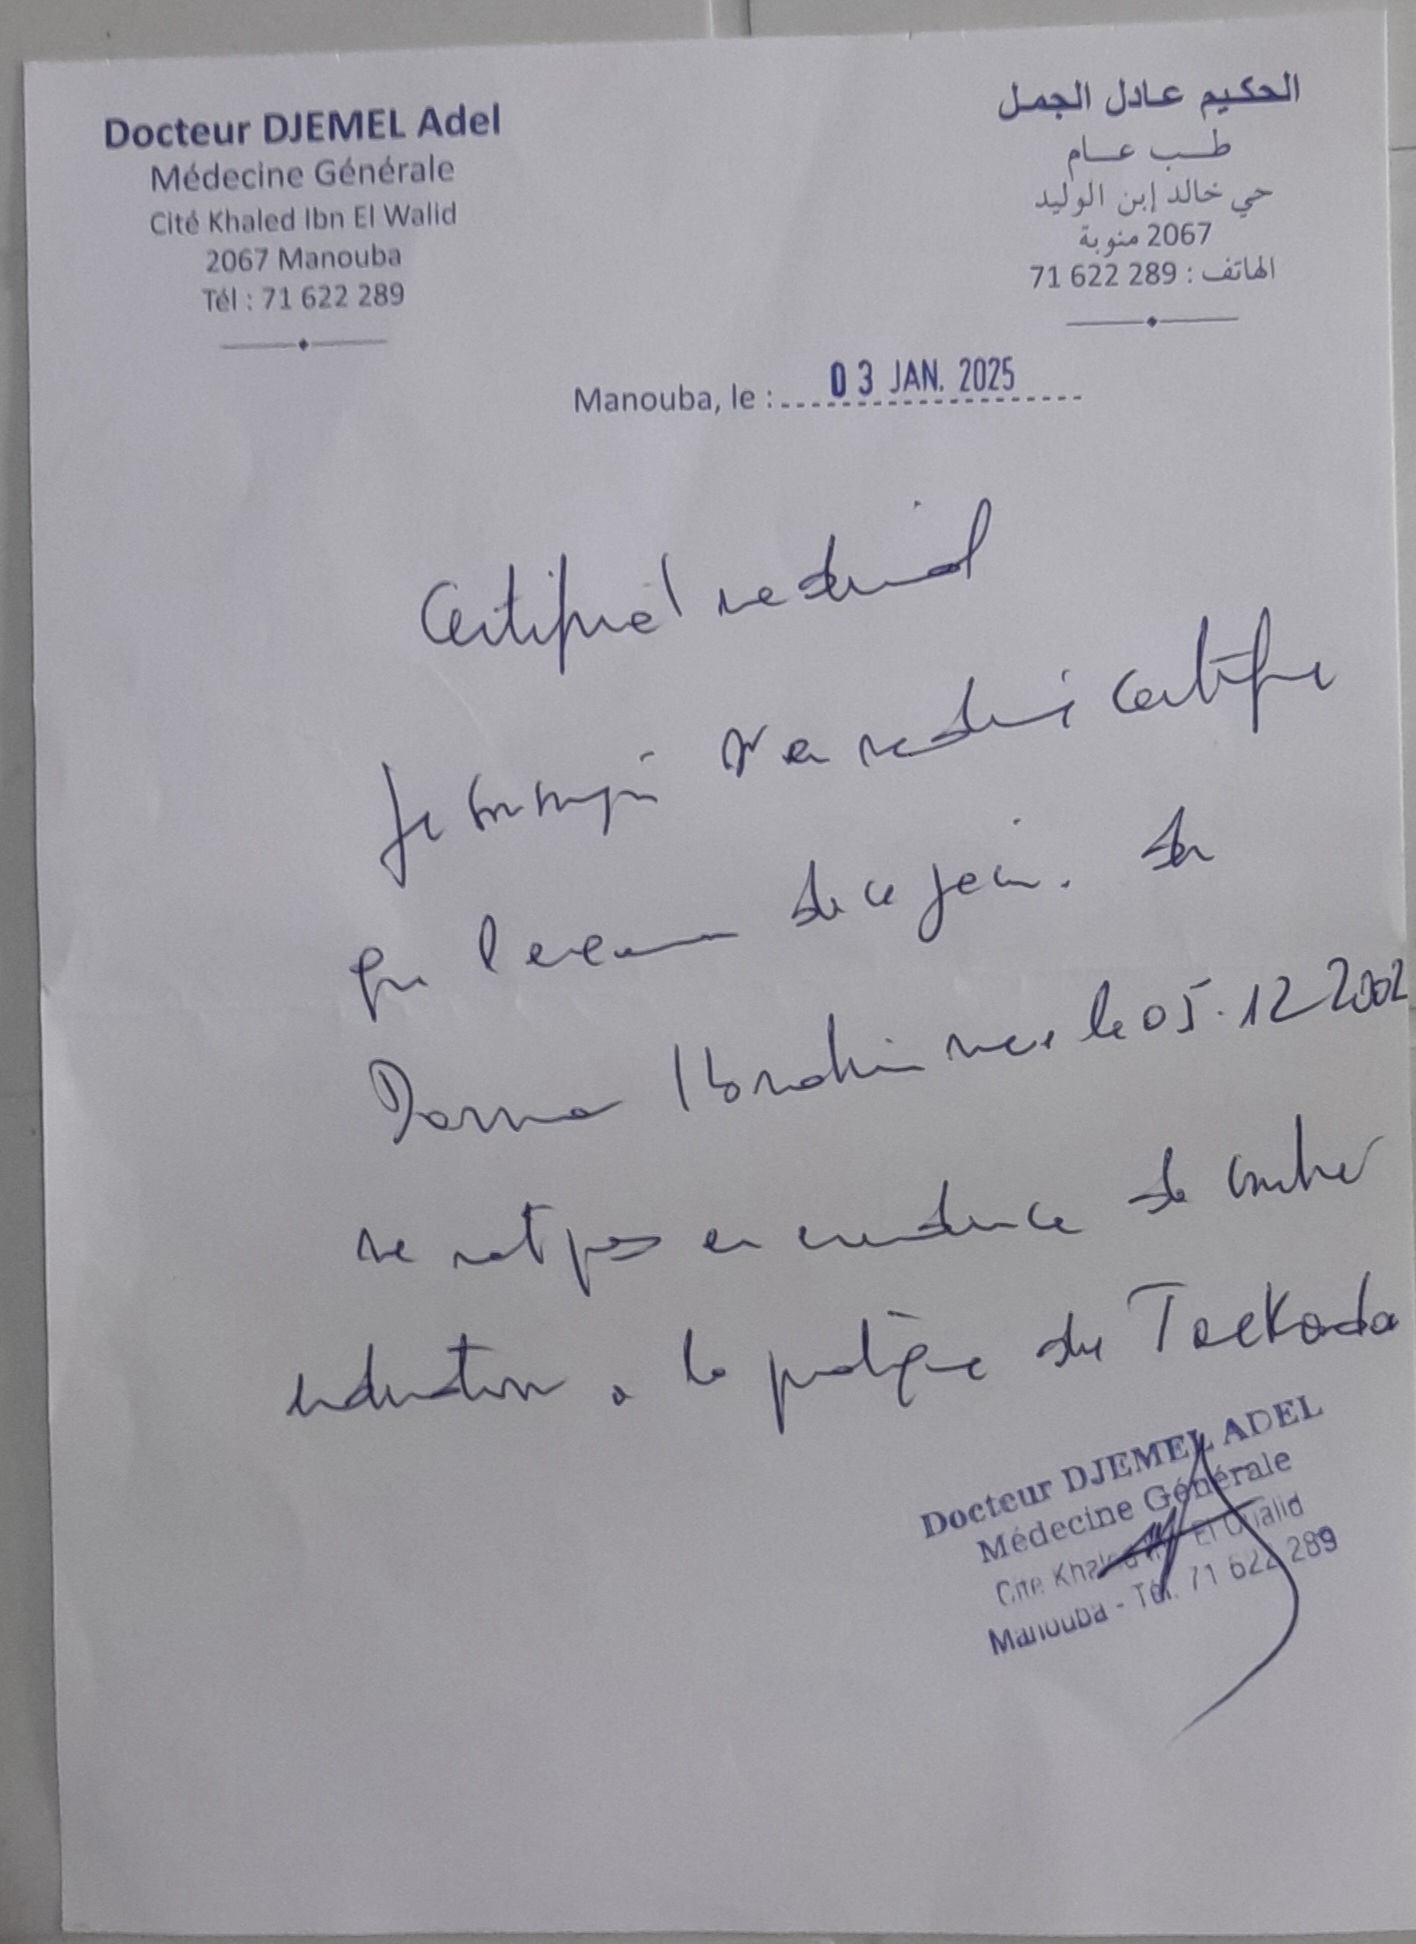 Docteur DJEMEL Adel
Médecine Générale
Cité Khaled Ibn El Walid
2067 Manouba
Tél : 71 622 289
الحكيم عادل الجمل
طب عام
حي خالد إبن الوليد
2067 منوبة
الهاتف : 71 622 289
Manouba, le : 03 JAN. 2025
Certificat medical
Je soussigné Dr en medecine certifie
que l'examen de ce jour. de
Ibrahim nee le 05.12 2002
ne met pas en evidence de contre
indication a la pratique du Taekonda
Docteur DJEMEL ADEL
Médecine Générale
Cite Khaled Ibn El Oualid
Manouba - Tél. 71 622 289